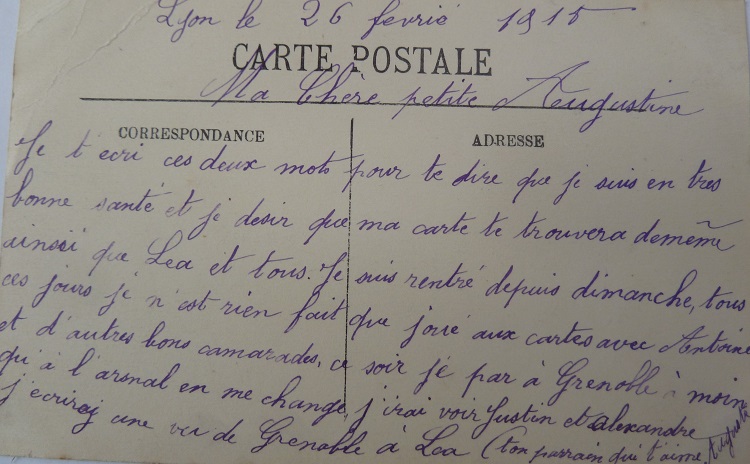 Lyon le 26 fevrié 1915
CARTE POSTALE
Ma Chère petite Augustine
CORRESPONDANCE
ADRESSE
Je t'ecri ces deux mots pour te dire que je suis en tres
bonne santé et je desir que ma carte te trouvera demême
ainsi que Lea et tous. Je suis rentré depuis dimanche, tous
ces jours je n'est rien fait que joué aux cartes avec Antoine
et d'autres bons camarades, ce soir je par à Grenoble à moin
qu'à l'arsnal en me change, j'irai voir Justin et alexandre
j'ecrirai une vu de Grenoble à Lea (ton parrain qui t'aime